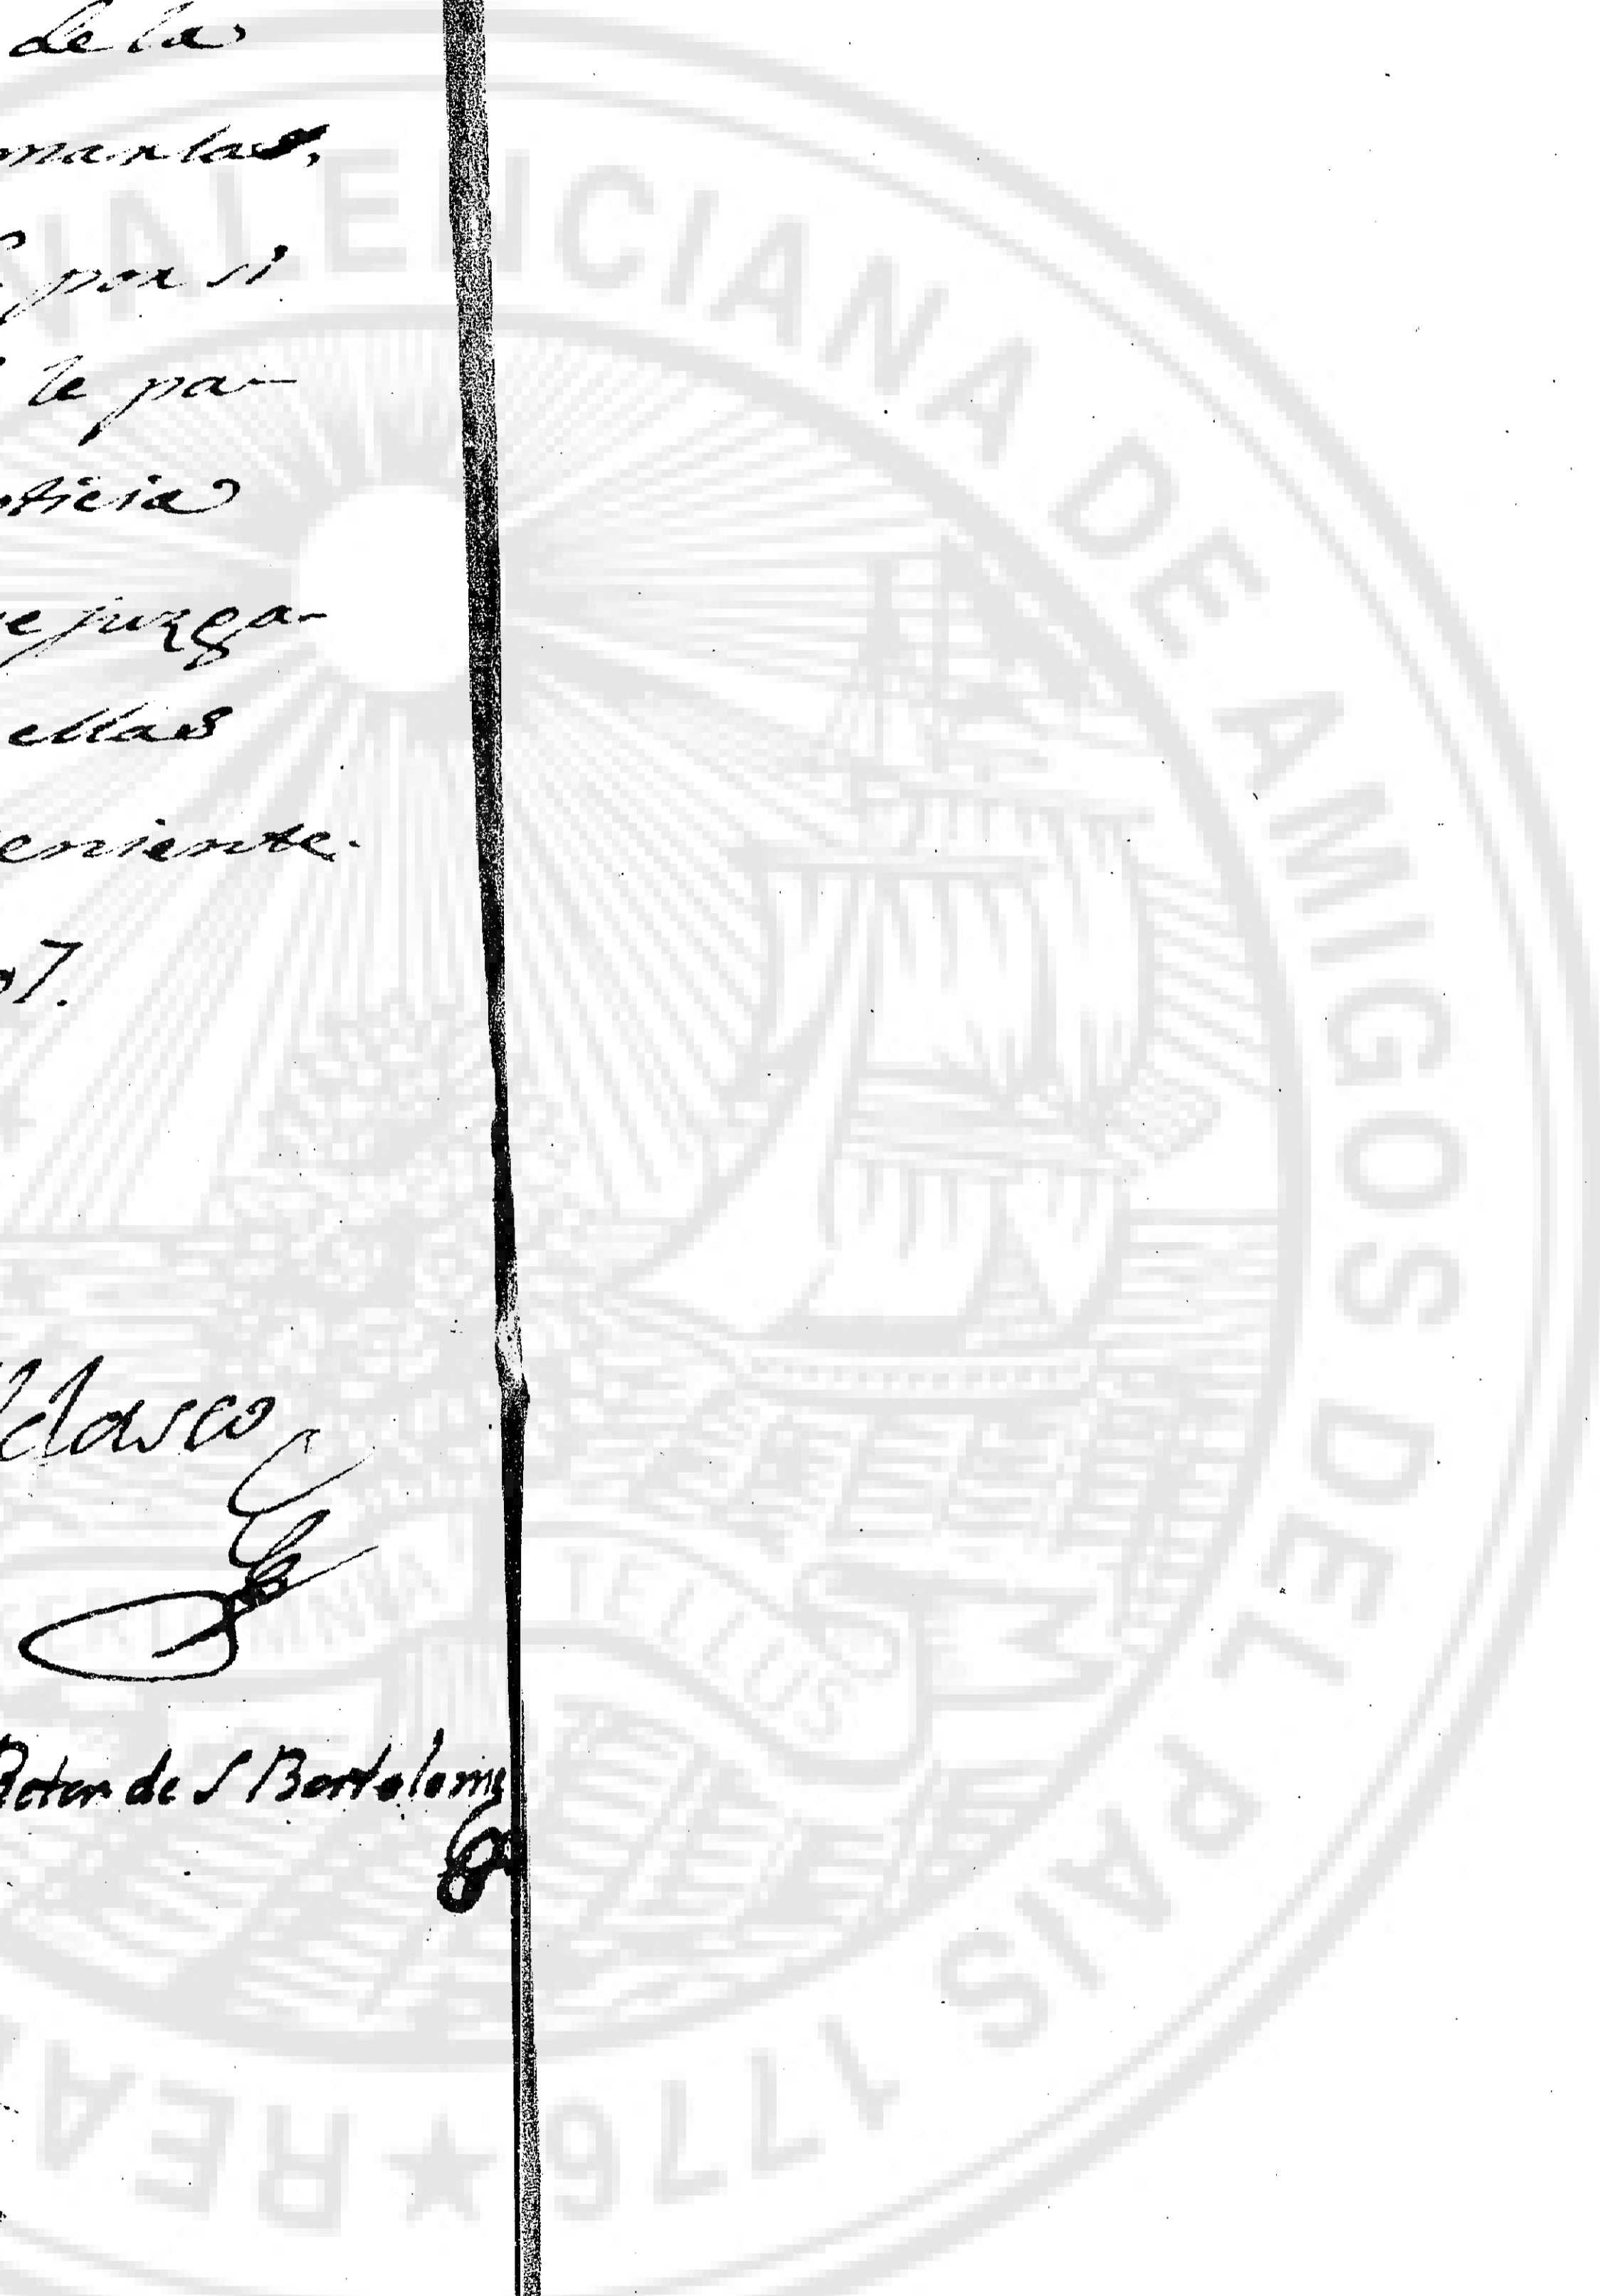 de la
mantas,
por si
le pa-
oticia
e juzga-
ellas
eniente.
07.
lasco
Retor de S Bartolome
VALENCIANA DE AMIGOS DEL PAIS 1776 ★ REA